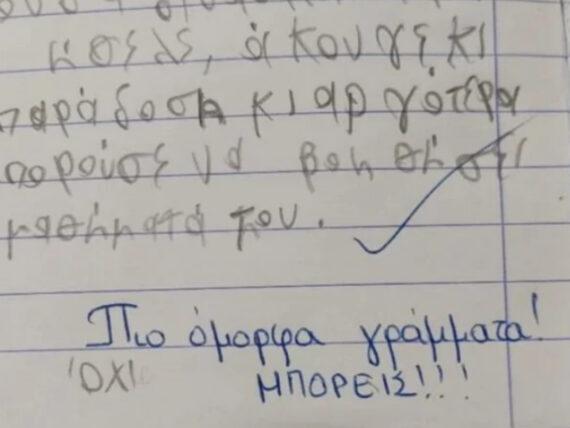 ήθελε, άκουγε κι
παράδοση κι αργότερα
πορούσε να βοηθήσει
μαθήματά του.
Πιο όμορφα γράμματα!
ΌΧΙ ΜΠΟΡΕΙΣ!!!